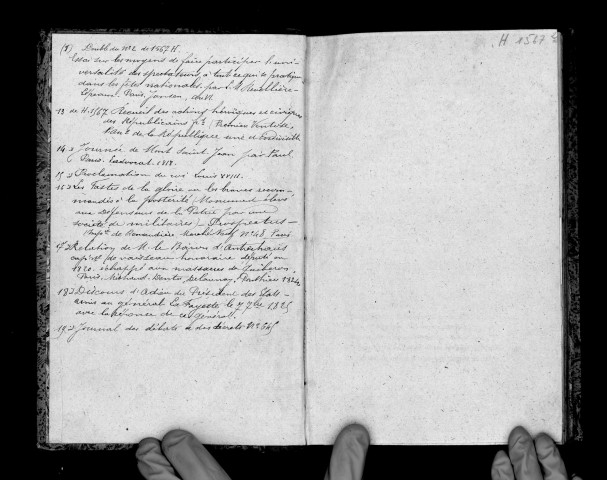 (1) Double du No 2 de 1567 H.
Essai sur les moyens de faire participer l'uni-
versalité des spectateurs à tout ce qui se pratique
dans les fêtes nationales par L. M. Revellière-
Lépeaux. Paris, Jansen, an VI.
13 de H. 1567 Recueil des actions héroïques et civiques
des Républicains fr. Premier Ventôse,
l'an 2 de la République une et indivisible
14 Journée de Mont Saint Jean par Paul
Paris. Ladvocat 1818.
15 Proclamation du roi Louis XVIII.
16 Les Fastes de la gloire ou les braves recom-
mandés à la postérité, Monument élevé
aux défenseurs de la Patrie par une
société de militaires - Prospectus -
Marché Neuf No 48, Paris
17 Relation de M. le Baron d'Antrechaus
capit. de vaisseau honoraire député en
1820. échappé aux massacres de Quiberon.
Paris. Michaud. Dentu Delaunay, Ponthieu 1824
18 Discours d'adieu du Président des Etats-
unis au général La Fayette le 7 7bre 1825
avec la réponse de ce général.
19 Journal des débats & des décrets No 545
H 1567